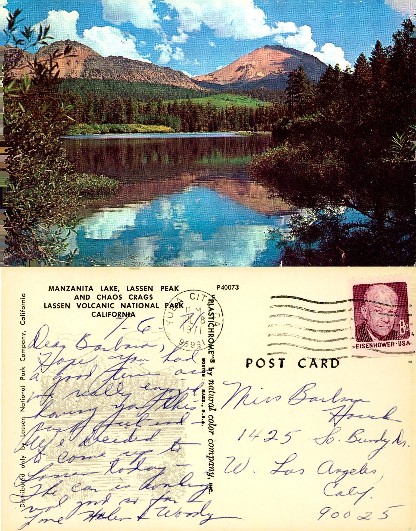 MANZANITA LAKE, LASSEN PEAK
AND CHAOS CRAGS
LASSEN VOLCANIC NATIONAL PARK
CALIFORNIA
Distributed only by Lassen National Park Company, California
Dear Barbara,
Hope you had
a good time as
we really enjoyed
having you this
past
We decided
to come up to
Lassen today
The car is doing
so far
Love Helen & Woody
"PLASTICHROME" by natural color company, inc.
P40073
YUBA CITY
EISENHOWER·USA
POST CARD
Miss Barbara
1425 So. Bundy Dr.
W. Los Angeles,
Calif.
90025